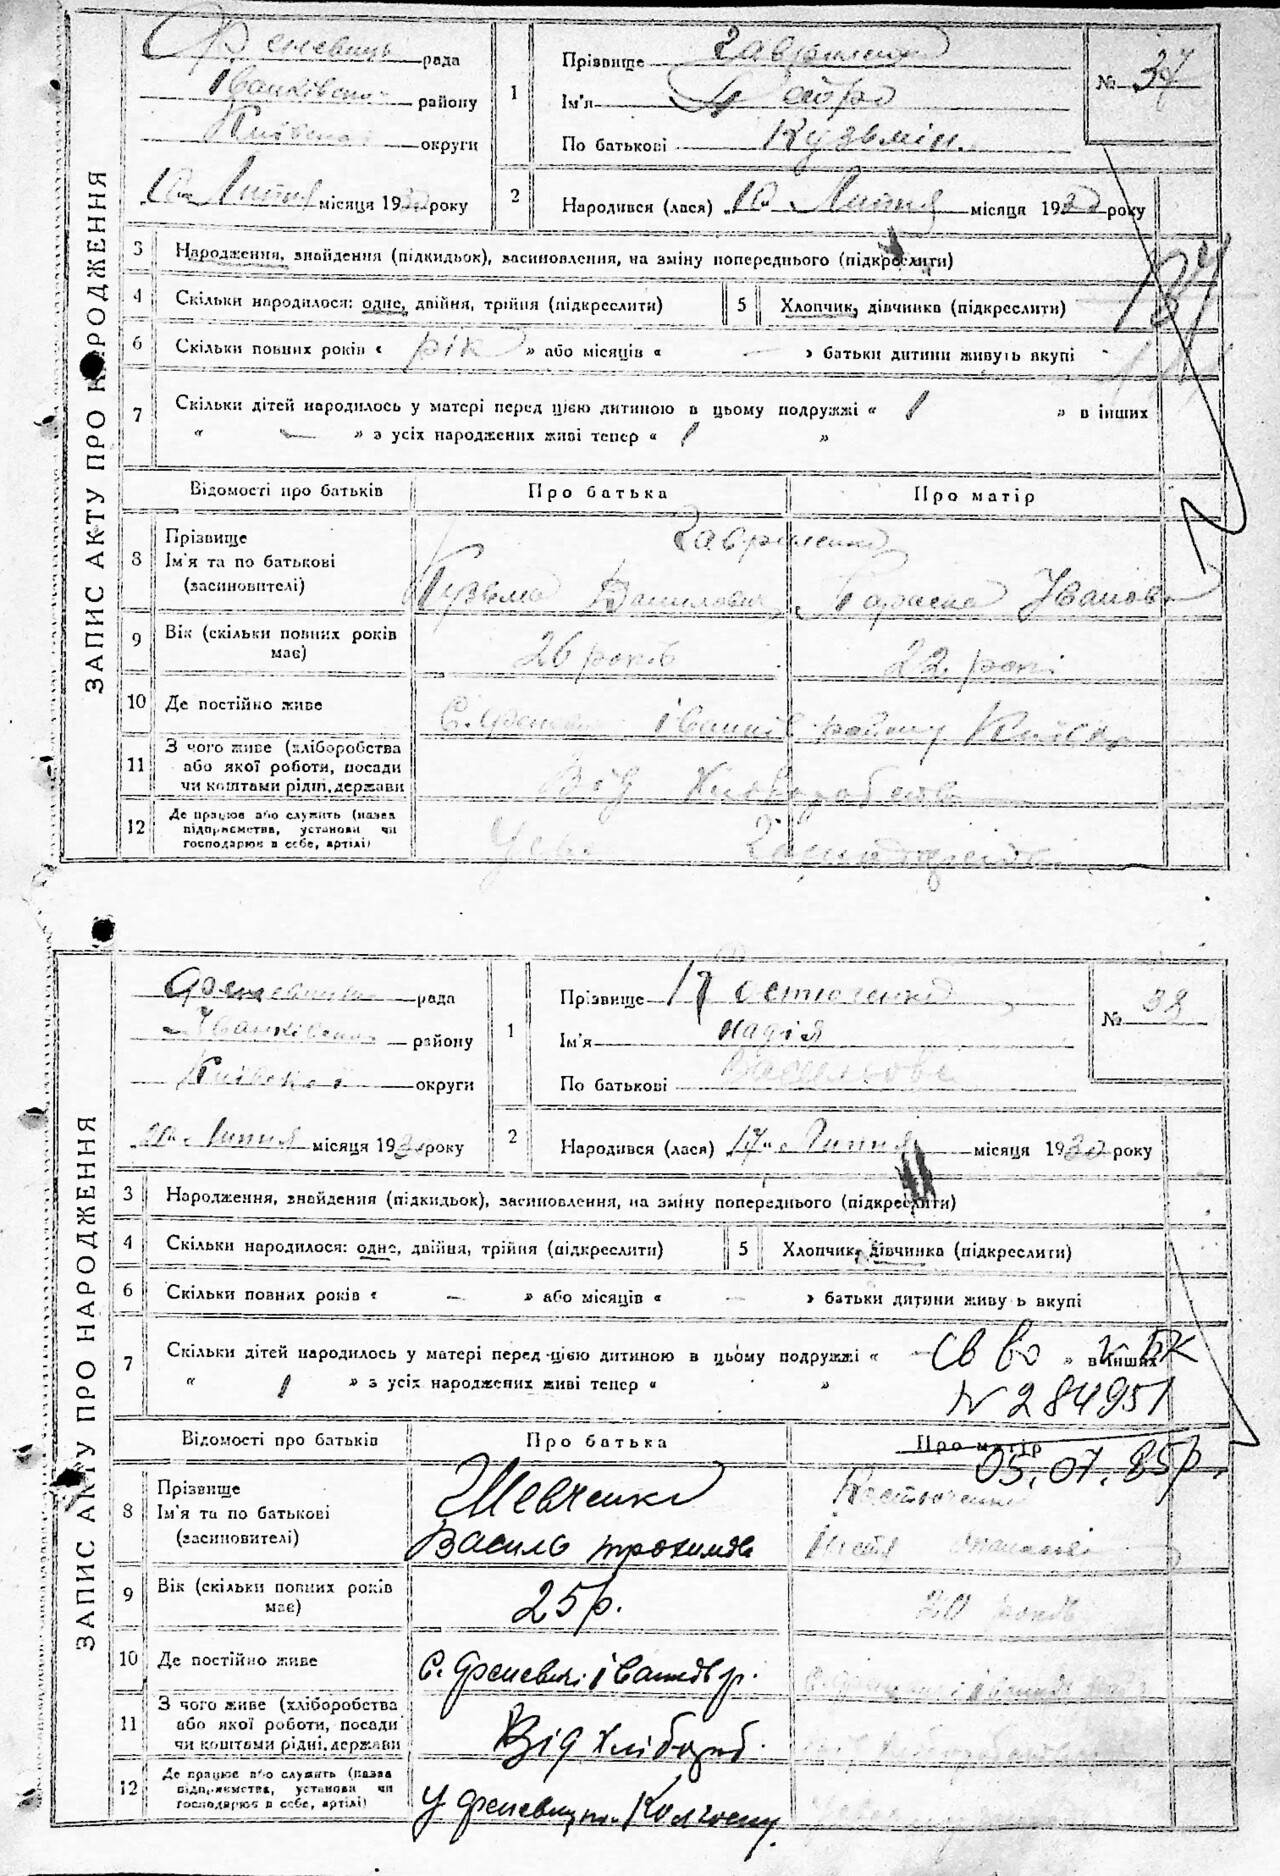 ЗАПИС АКТУ ПРО НАРОДЖЕННЯ
рада
Іванківського району
Київської округи
10 Липня місяця 1930 року
1 Прізвище Гавриленко
Ім'я Педро
По батькові Кузьмін.
№ 37
2 Народився (лася) „10" Липня місяця 1930 року
3 Народження, знайдення (підкидьок), засиновлення, на зміну попереднього (підкреслити)
4 Скільки народилося: одне, двійня, трійня (підкреслити)
5 Хлопчик, дівчинка (підкреслити)
6 Скільки повних років « рік » або місяців « — » батьки дитини живуть вкупі
7 Скільки дітей народилось у матері перед цією дитиною в цьому подружжі « 1 » в інших
« — » з усіх народжених живі тепер « 1 »
Відомості про батьків Про батька Про матір
8 Прізвище
Ім'я та по батькові
(засиновителі)
Гавриленко
Кузьма Данилович Параска Іванова
9 Вік (скільки повних років
має)
26 років 22 роки
10 Де постійно живе
с. Іванків району
11 З чого живе (хліборобства
або якої роботи, посади
чи коштами рідні, держави
Від Хліборобства
12 Де працює або служить (назва
підприємства, установи чи
господарює в себе, артілі)
ЗАПИС АКТУ ПРО НАРОДЖЕННЯ
рада
Іванківського району
Київської округи
20 Липня місяця 1930 року
1 Прізвище Костюченко
Ім'я Надія
По батькові Васильові
№ 38
2 Народився (лася) „17" Липня місяця 1930 року
3 Народження, знайдення (підкидьок), засиновлення, на зміну попереднього (підкреслити)
4 Скільки народилося: одне, двійня, трійня (підкреслити)
5 Хлопчик, дівчинка (підкреслити)
6 Скільки повних років « — » або місяців « — » батьки дитини живу ь вкупі
7 Скільки дітей народилось у матері перед цією дитиною в цьому подружжі « — » в інших
« 1 » з усіх народжених живі тепер « »
Св во
N 284951
05.07.85р.
Відомості про батьків Про батька Про матір
8 Прізвище
Ім'я та по батькові
(засиновителі)
Шевченко Костюченко
Василь Трохимов
9 Вік (скільки повних років
має)
25 р. 20 років
10 Де постійно живе
с. Френевичі Іванків р.
11 З чого живе (хліборобства
або якої роботи, посади
чи коштами рідні, держави
Від хлібороб.
12 Де працює або служить (назва
підприємства, установи чи
господарює в себе, артілі)
У Колгоспу